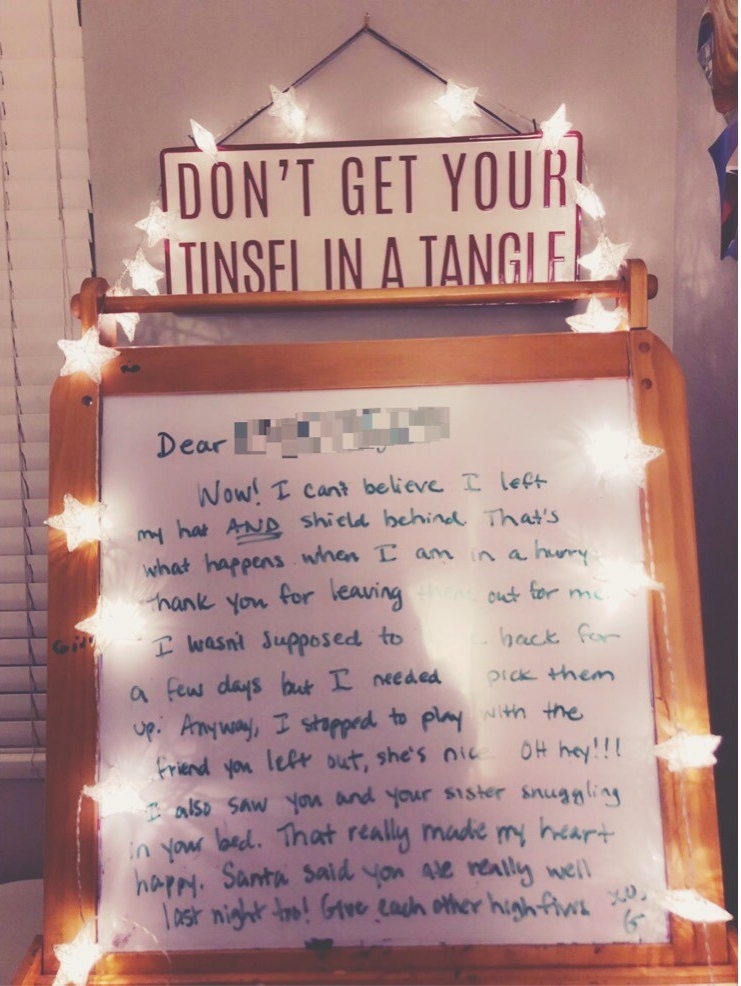 DON'T GET YOUR
TINSEL IN A TANGLE
Dear
Wow! I can't believe I left
my hat AND shield behind. That's
what happens when I am in a hurry
thank you for leaving them out for me.
I wasn't supposed to back for
a few days but I needed pick them
up. Anyway, I stopped to play with the
friend you left out, she's nice OH hey!!!
I also saw you and your sister snuggling
in your bed. That really made my heart
happy. Santa said you ate really well
last night too! Give each other high fives xo.
G